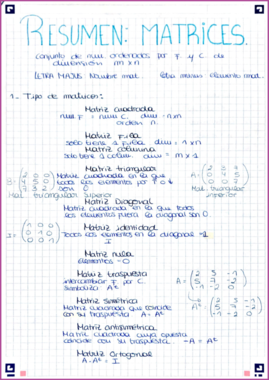 RESUMEN: MATRICES.
conjunto de num. ordenados por F y C de
dimensión m x n
LETRA MAJUS Nombre mat. letra minus elemento mat.
1- Tipo de matrices:
Matriz cuadrada
num F = num C. dim = n.n
orden n.
Matriz Fila
solo tiene 1 fila. dim = 1 x n
Matriz columna
solo tiene 1 colum. dim = m x 1
Matriz triangular
Matriz cuadrada en la que
todos los elementos por
son 0
Mat. triangular superior
Mat. triangular
inferior
Matriz Diagonal
Matriz cuadrada en la que todos
los elementos fuera la diagonal son 0
Matriz identidad
Todos los elementos en la diagonal = 1
I
Matriz nula
elementos = 0
Matriz traspuesta
intercambiar F por C.
simboliza Aᵗ
Matriz simétrica
Matriz cuadrada que coincide
con su traspuesta A = Aᵗ
Matriz antisimétrica
Matriz cuadrada cuya opuesta
coincide con su traspuesta -A = Aᵗ
Matriz Ortogonal
A · Aᵗ = I